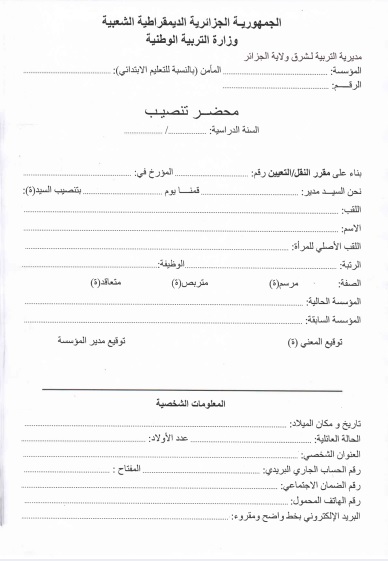 الجمهوريـة الجزائرية الديمقراطية الشعبية
وزارة التربية الوطنية
مديرية التربية لـشرق ولاية الجزائر
المؤسسة: ........................ المأمن (بالنسبة للتعليم الابتدائي): ........................
الرقــم: ........................
محضـر تنصيـب
السنة الدراسية: ................/ ................
بناء على مقرر النقل/التعيين رقم: ........................ المؤرخ في: ........................
نحن السيـد مدير: ........................ قمنــا يوم ........................ بتنصيب السيد(ة):
اللقب: ........................
الاسم: ........................
اللقب الأصلي للمرأة: ........................
الرتبة: ........................ الوظيفة: ........................
الصفة: مرسم(ة) متربص(ة) متعاقد(ة)
المؤسسة الحالية: ........................
المؤسسة السابقة: ........................
توقيع المعني (ة) توقيع مدير المؤسسة
المعلومات الشخصية
تاريخ و مكان الميلاد: ........................
الحالة العائلية: ........................ عدد الأولاد: ........................
العنوان الشخصي: ........................
رقم الحساب الجاري البريدي: ........................ المفتاح : ........................
رقم الضمان الاجتماعي: ........................
رقم الهاتف المحمول: ........................
البريد الإلكتروني بخط واضح ومقروء: ........................